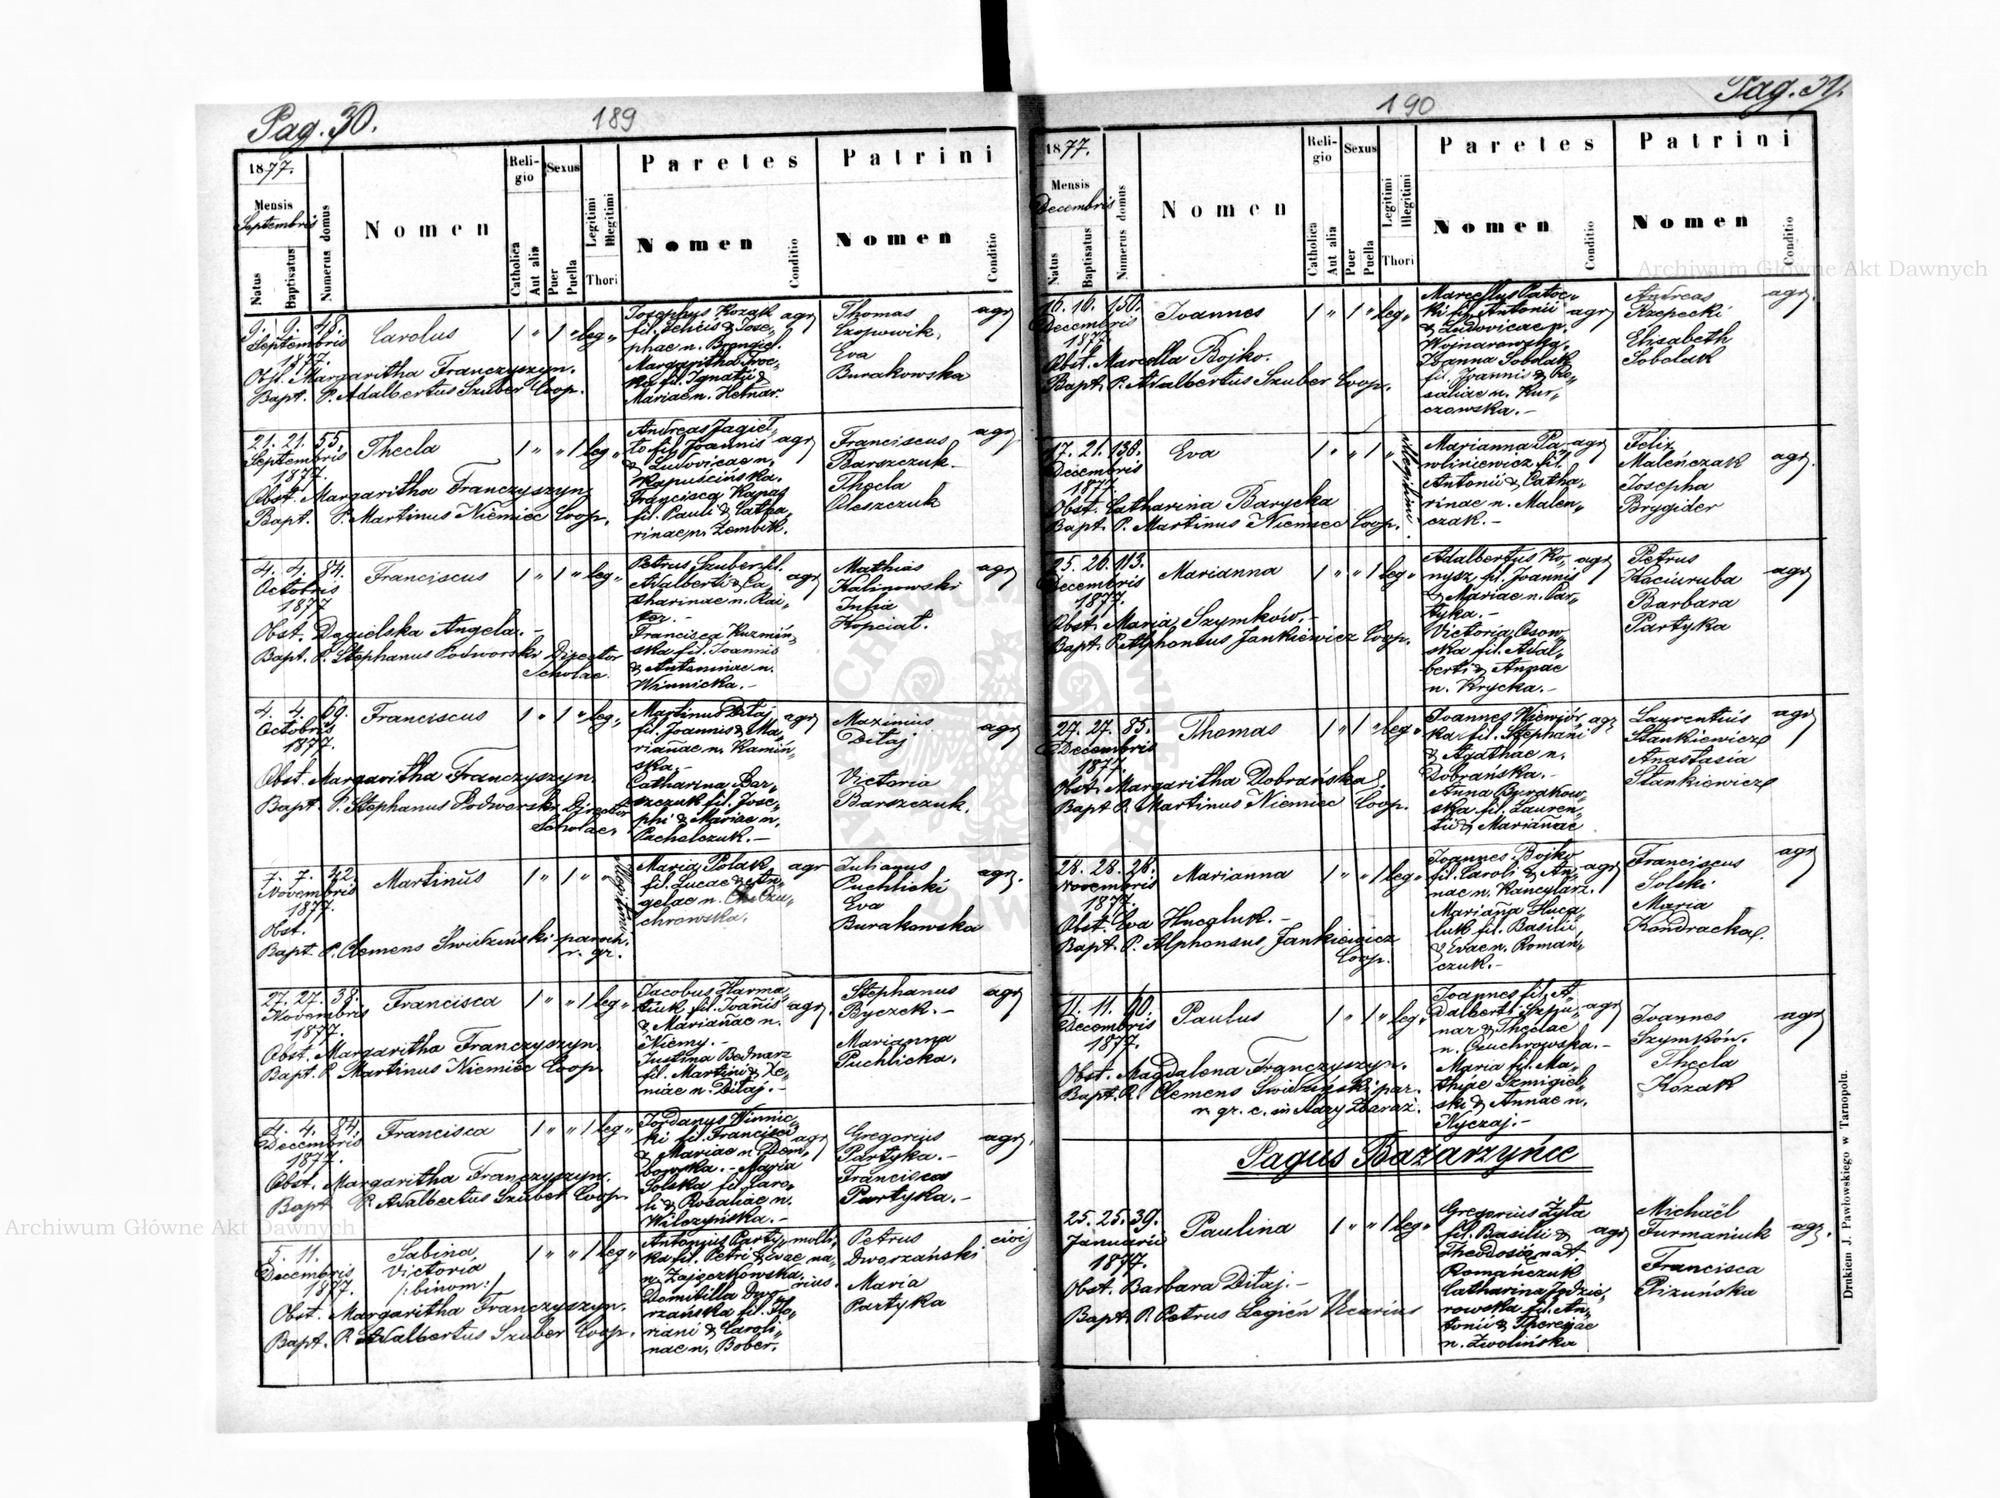 Pag. 30.
189
1877.
Mensis
Septembris
Natus
Baptisatus
Numerus domus
Nomen
Religio
Catholica
Aut alia
Sexus
Puer
Puella
Legitimi
Illegitimi
Thori
Paretes
Nomen
Conditio
Patrini
Nomen
Conditio
9. 9. 48.
Septembris
1877.
Carolus
1 " 1 " leg "
Obst. Margaritha Franczyszyn.
Bapt. P. Adalbertus Szuber Coop.
Josephus Kozak agr
fil. Felicis & Jose-
phae n.
Margaritha
fil. Ignatii &
Mariae n. Hetnar.
Thomas agr
Czopowik.
Eva
Burakowska
21. 21. 55.
Septembris
1877.
Thecla
1 " " 1 leg "
Obst. Margaritha Franczyszyn
Bapt. P. Martinus Niemiec Coop.
Andreas Jagieł-
to fil. Joannis agr
& Ludovicae n.
Kapuścińska.
Francisca Kapas
fil. Pauli & Catha-
rinae n. Zombik.
Franciscus agr
Barszczuk.
Thecla
Oleszczuk
4. 4. 84.
Octobris
1877
Franciscus
1 " 1 " leg "
Obst. Dągielska Angela. -
Bapt. P. Stephanus Podworski Director
Scholae.
Petrus Szuber fil.
Adalberti & Ca- agr
tharinae n. Rai-
ter. -
Francisca Kuzmiń-
ska fil. Joannis
& Antoninae n.
Winnicka. -
Mathias agr
Kalinowski
Julia
Kopciał.
4. 4. 69.
Octobris
1877.
Franciscus
1 " 1 " leg "
Obst. Margaritha Franczyszyn.
Bapt. P. Stephanus Podworski Director
Scholae.
Martinus Ditaj agr
fil. Joannis & Ma-
rianae n. Kamiń-
ska. -
Catharina Bar-
szczuk fil. Jose-
phi & Mariae n.
Pacholczuk. -
Maximius agr
Ditaj
Victoria
Barszczuk.
7. 7. 42.
Novembris
1877.
Martinus
1 " 1 " "
Obst.
Bapt. P. Clemens Świdziński paroch.
r. gr.
Maria Polak agr
fil. Lucae & An-
gelae n.
chrowska.
Julianus agr.
Puchlicki
Eva
Burakowska
27. 27. 38.
Novembris
1877.
Francisca
1 " " 1 leg "
Obst. Margaritha Franczyszyn.
Bapt. P. Martinus Niemiec Coop.
Jacobus Harma-
tiuk fil. Joanis agr
& Marianae n.
Niemy. -
Justina Bednarz
fil. Martini & Xe-
niae n. Ditaj. -
Stephanus agr
Byczek. -
Marianna
Puchlicka.
4. 4. 84.
Decembris
1877.
Francisca
1 " " 1 leg "
Obst. Margaritha Franczyszyn.
Bapt. P. Adalbertus Szuber Coop.
Jordanus Winnic-
ki fil. Francisci agr
& Mariae n. Dom-
bowska. - Maria
Solska fil. Caro-
li & Rosaliae n.
Wilczyńska. -
Gregorius agr.
Partyka. -
Francisca
Partyka. -
5. 11.
Decembris
1877.
Sabina
Victoria
/:binom:/
1 " " 1 leg "
Obst. Margaritha Franczyszyn.
Bapt. P. Adalbertus Szuber Coop.
Antonius Party- molli-
ka fil. Petri & Evae na-
n. Zajączkowska. rius.
Domitilla Dwo-
rzańska fil. Flo-
riani & Caroli-
nae n. Bober.
Petrus civis
Dworzański
Maria
Partyka
190
Pag. 31.
1877.
Mensis
Decembris
Natus
Baptisatus
Numerus domus
Nomen
Religio
Catholica
Aut alia
Sexus
Puer
Puella
Legitimi
Illegitimi
Thori
Paretes
Nomen
Conditio
Patrini
Nomen
Conditio
16. 16. 150.
Decembris
1877.
Joannes
1 " 1 " leg "
Obst. Marcella Bojko.
Bapt. P. Adalbertus Szuber Coop.
Marcellus Patoc-
ki fil. Antonii agr
& Ludovicae n.
Wojnarowska.
Joanna Sobolak
fil. Joannis & Ro-
saliae n. Kur-
czowska. -
Andreas agr.
Rzepecki
Elisabeth
Sobolak
17. 21. 138.
Decembris
1877.
Eva
1 " " 1 "
Illegitimi
Obst. Catharina Barycka
Bapt. P. Martinus Niemiec Coop.
Marianna Pa- agr
wliniewicz fil.
Antonii & Catha-
rinae n. Malen-
czak. -
Felix
Maleńczak agr.
Josepha
Brygider
25. 26. 113.
Decembris
1877.
Marianna
1 " " 1 leg "
Obst. Maria Szymków. -
Bapt. P. Alphonsus Jankiewicz Coop.
Adalbertus Ko- agr
nysz fil. Joannis
& Mariae n. Par-
tyka. -
Victoria Osow-
ska fil. Adal-
berti & Annae
n. Krycka. -
Petrus
Kaciuruba agr
Barbara
Partyka
27. 27. 85.
Decembris
1877.
Thomas
1 " 1 " leg "
Obst. Margaritha Dobrańska.
Bapt. P. Martinus Niemiec Coop.
Joannes Wiewiór- agr
ka fil. Stephani
& Agathae n.
Dobrańska. -
Anna Burakow-
ska fil. Lauren-
tii & Marianae
Laurentius agr
Stankiewicz
Anastasia
Stankiewicz
28. 28. 28.
Novembris
1877.
Marianna
1 " " 1 leg "
Obst. Eva Hucaluk. -
Bapt. P. Alphonsus Jankiewicz
Coop.
Joannes Bojko
fil. Caroli & An- agr
nae n. Kancylarz.
Mariana Huca-
luk fil. Basilii
& Evae n. Roman-
czuk. -
Franciscus agr
Solski
Maria
Kondracka.
11. 11. 60.
Decembris
1877.
Paulus
1 " 1 " leg "
Obst. Magdalena Franczyszyn.
Bapt. R. Clemens Świdziński par.
r. gr. c. in Stary Zbaraż.
Joannes fil. A-
dalberti Szpu- agr
nar & Theclae
n. Czuchrowska. -
Maria fil. Ma-
thiae Szmigiel-
ski & Annae n.
Kyczaj. -
Joannes agr
Szymków.
Thecla
Kozak
Pagus Bazarzyńce
25. 25. 39.
Januarii
1877.
Paulina
1 " " 1 leg "
Obst. Barbara Ditaj. -
Bapt. P. Petrus Legień Vicarius
Gregorius Zyła
fil. Basilii & agr
Theodosia nat.
Romańczuk
Catharina
rowska fil. An-
tonii & Theresiae
n. Zwolińska
Michaël
Furmaniuk agr.
Francisca
Pizuńska
Drukiem J. Pawłowskiego w Tarnopolu.
Archiwum Główne Akt Dawnych
Archiwum Główne Akt Dawnych